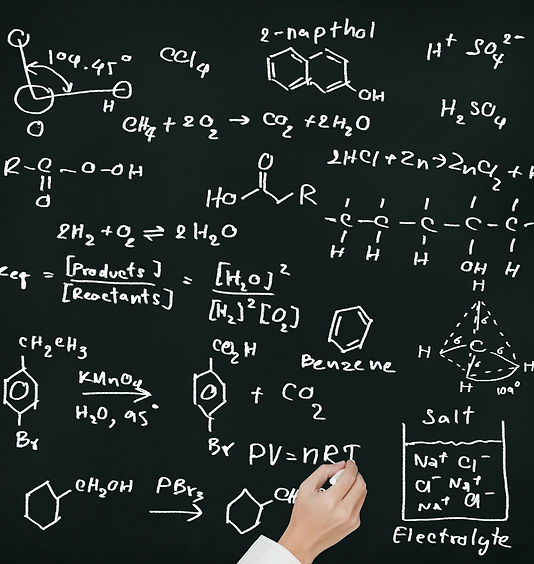 104.45°
H
O
CCl4
2-napthol
OH
H+ SO4 2-
H2SO4
CH4 + 2O2 → CO2 + 2H2O
R-C-O-OH
O
O
HO R
2HCl + Zn → ZnCl2 +
-C-C-C-C-C
H H H OH H
2H2 + O2 ⇌ 2H2O
eq = [Products] / [Reactants] = [H2O]2 / [H2]2 [O2]
Benzene
H
C
H H
H
109°
CH2CH3
Br
KMnO4
H2O, 95°
CO2H
Br
+ CO2
PV = nRT
Salt
Na+ Cl-
Cl- Na+
Na+ Cl-
Electrolyte
CH2OH
PBr3
→